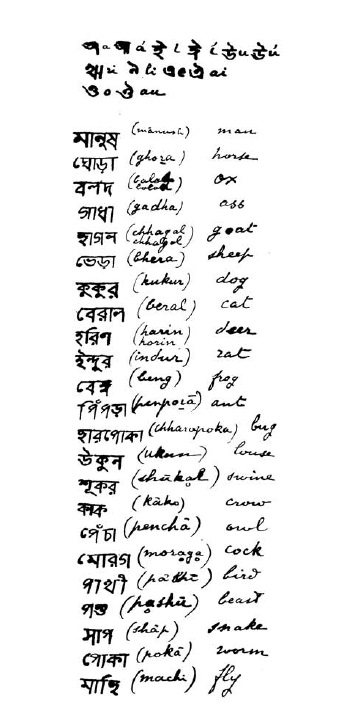 অ a আ á ই i ঈ í উ u ঊ ú
ঋ ri ঌ li এ e ঐ ai
ও o ঔ au
মানুষ (mānush) man
ঘোড়া (ghora) horse
বলদ ox
গাধা (gadha) ass
ছাগল (chhagal chhagol) goat
ভেড়া (bhera) sheep
কুকুর (kukur) dog
বেরাল (beral) cat
হরিণ (harin horin) deer
ইন্দুর (indur) rat
বেঙ্গ (beng) frog
পিঁপড়া (penporā) ant
ছারপোকা (chharopoka) bug
উকুন (ukun) louse
শূকর (shūkar) swine
কাক (kāko) crow
পেঁচা (penchā) owl
মোরগ (moraga) cock
পাখী bird
পশু (pashū) beast
সাপ (shāp) snake
পোকা (pokā) worm
মাছি (machi) fly